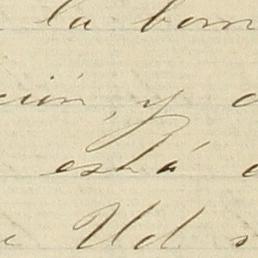 la bom
ción, y
está
Ud s